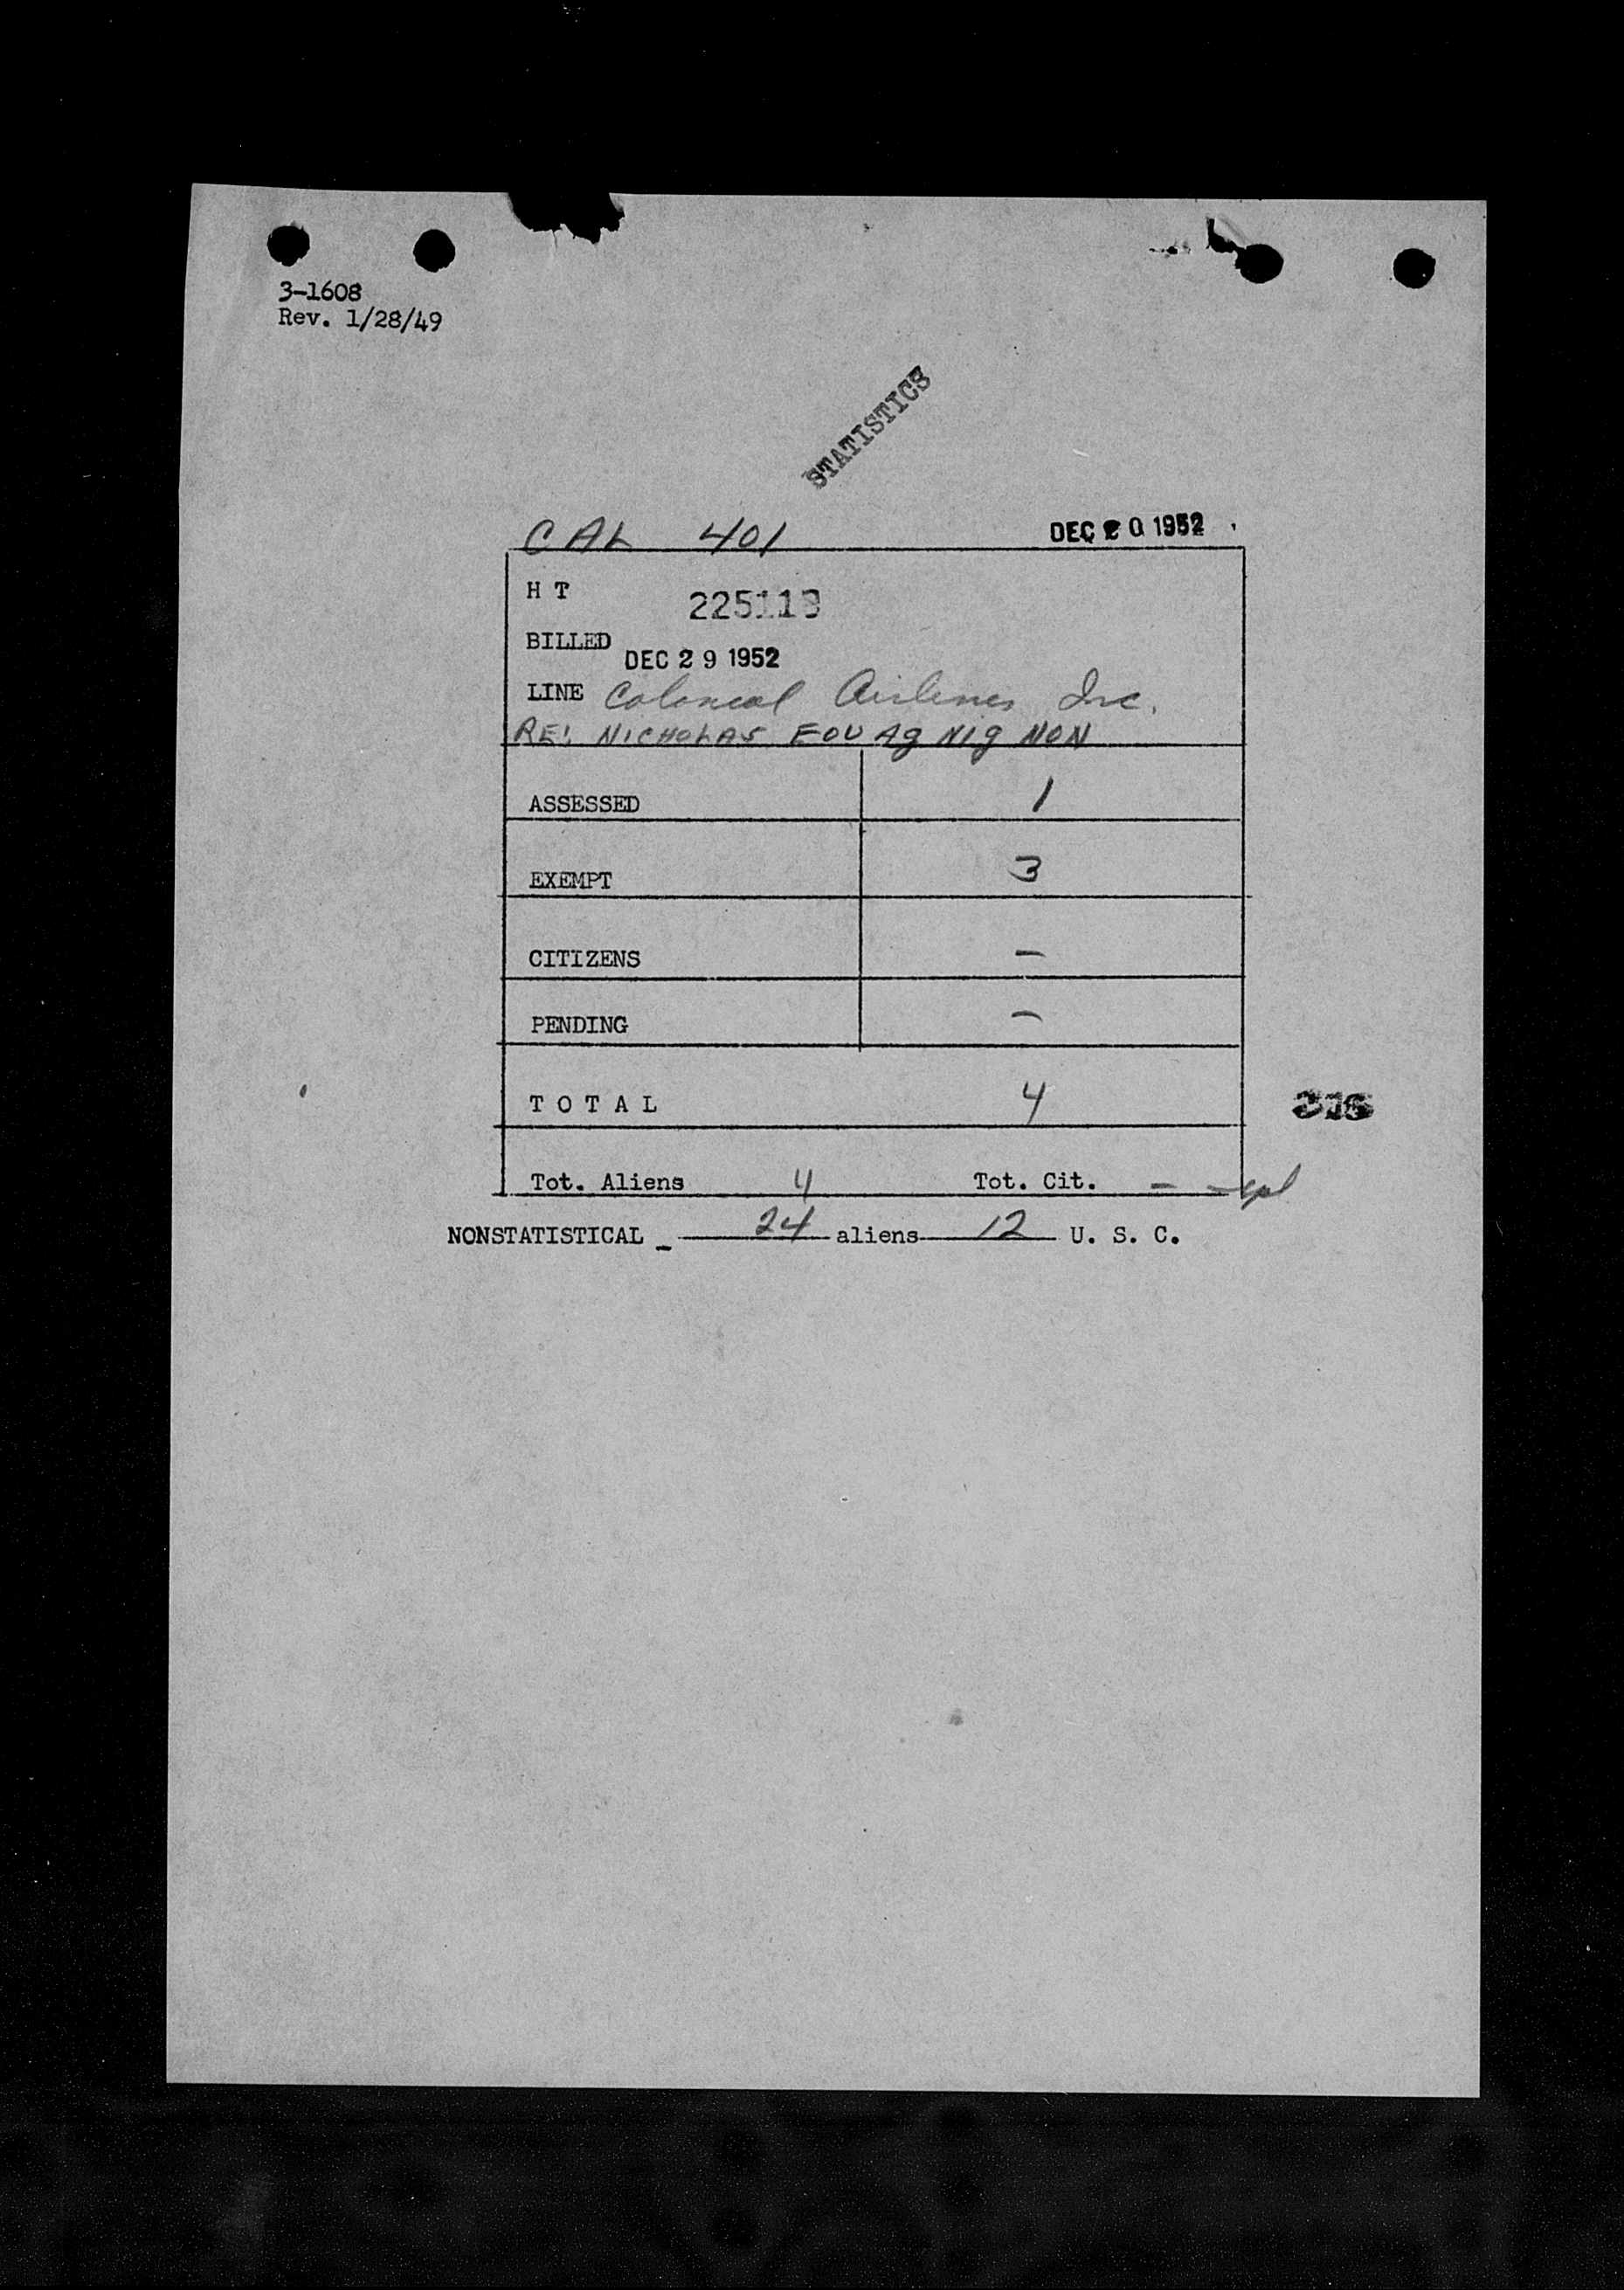 3-1608
Rev. 1/28/49
STATISTICS
CAL 401 DEC 20 1952
H T 225113
BILLED DEC 29 1952
LINE Colonial Airlines Inc.
RE: NICHOLAS
ASSESSED 1
EXEMPT 3
CITIZENS –
PENDING –
T O T A L 4
Tot. Aliens 4 Tot. Cit. –
NONSTATISTICAL _ 24 aliens 12 U. S. C.